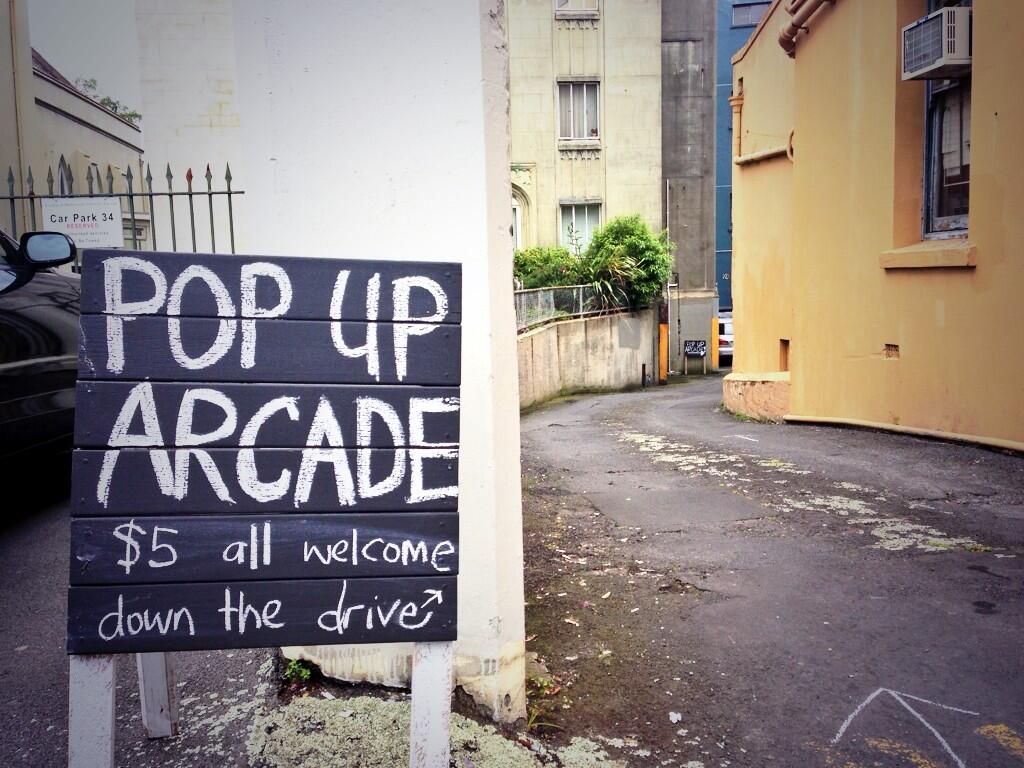 Car Park 34
RESERVED
POP UP
ARCADE
$5 all welcome
down the drive↗
POP UP
ARCADE